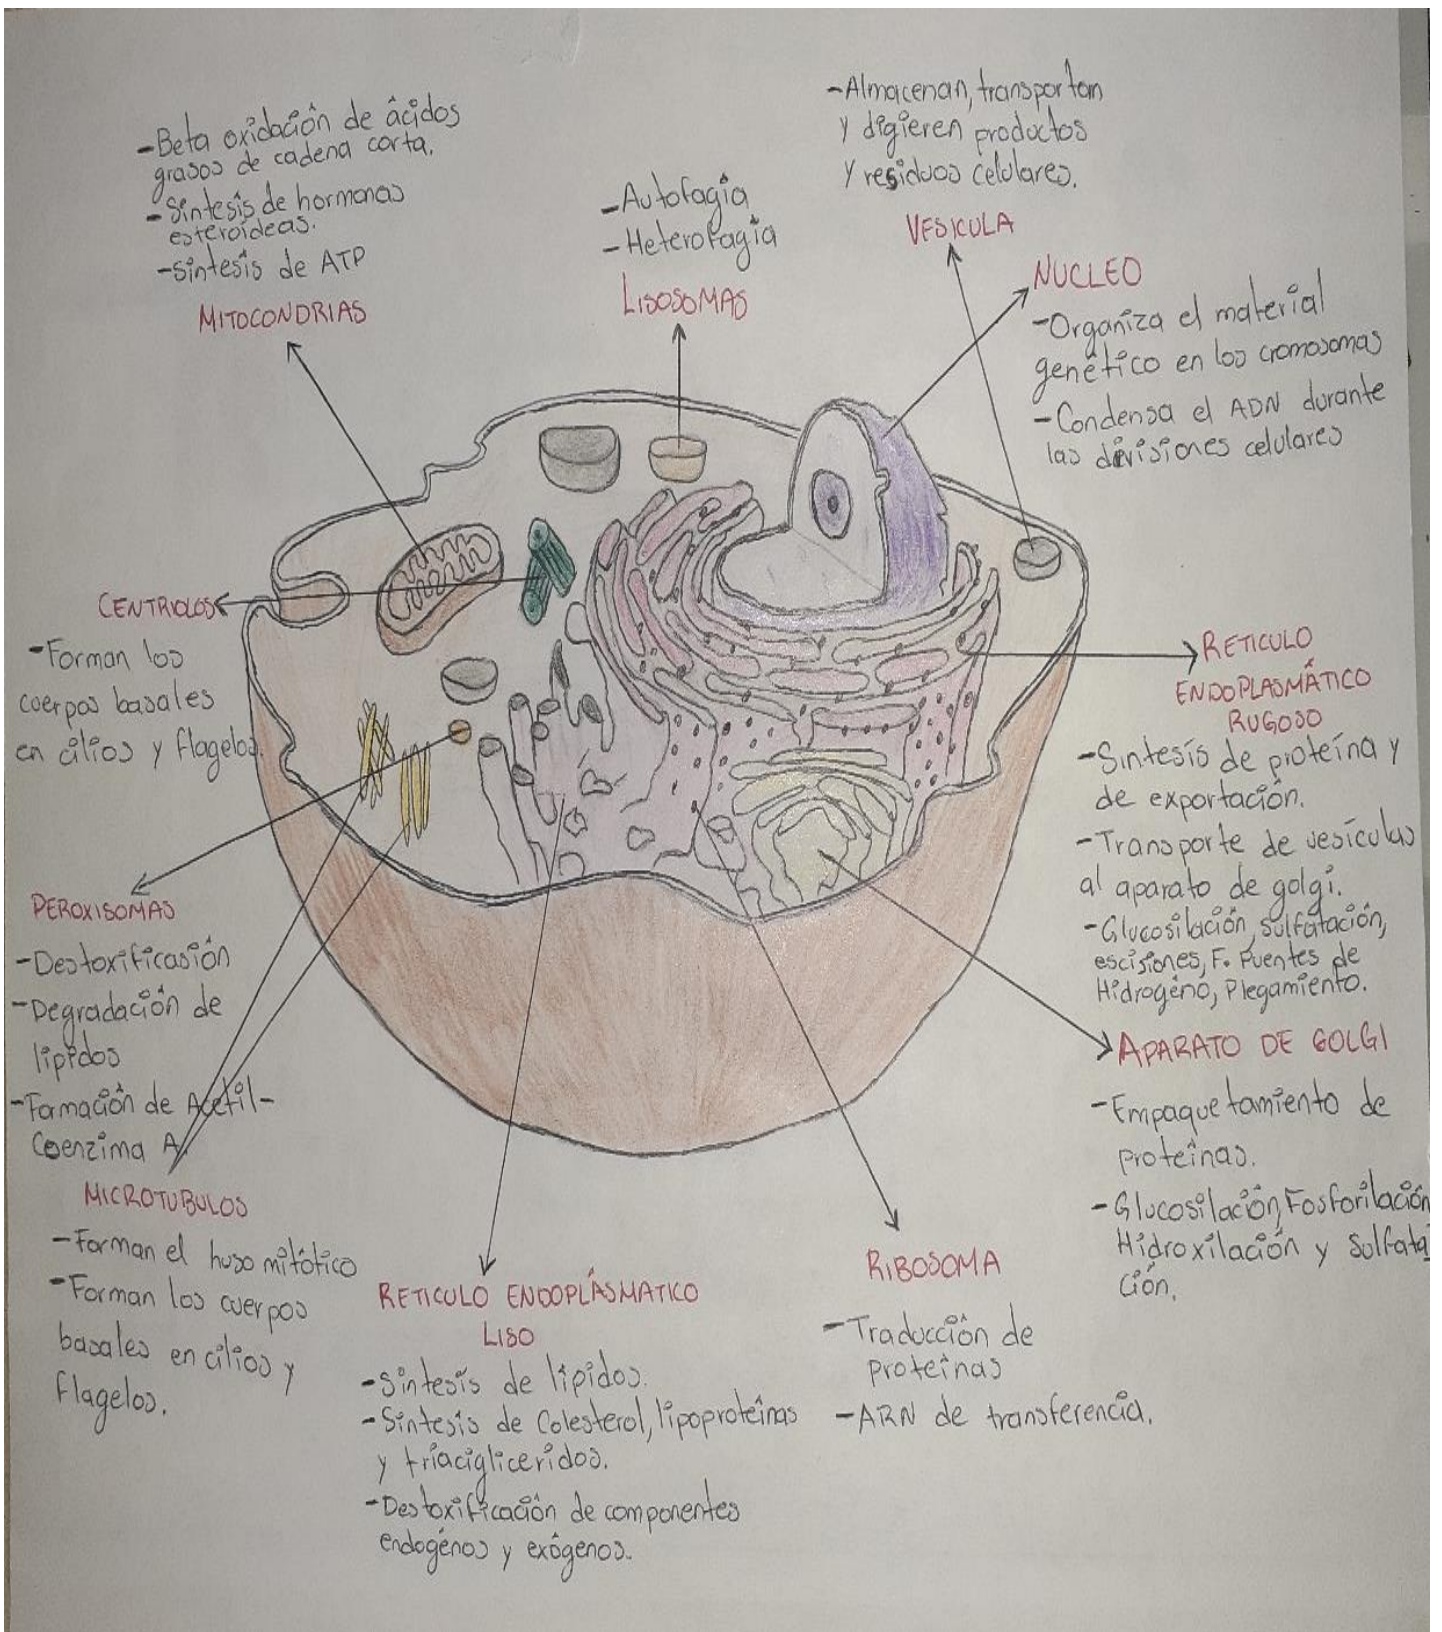 -Beta oxidación de ácidos
grasos de cadena corta.
-Síntesis de hormonas
esteroídeas.
-Síntesis de ATP
MITOCONDRIAS
-Autofagia
-Heterofagia
LISOSOMAS
-Almacenan, transportan
y digieren productos
y residuos celulares.
VESICULA
NUCLEO
-Organiza el material
genético en los cromosomas
-Condensa el ADN durante
las divisiones celulares
CENTRIOLOS
-Forman los
cuerpos basales
en cilios y flagelos.
RETICULO
ENDOPLASMÁTICO
RUGOSO
-Sintesís de proteína y
de exportación.
-Transporte de vesículas
al aparato de golgi.
-Glucosilación, sulfatación,
escisiones, F. Puentes de
Hidrogéno, Plegamiento.
PEROXISOMAS
-Destoxificasión
-Degradación de
lípidos
-Formación de Acetil-
Coenzima A
APARATO DE GOLGI
-Empaquetamiento de
proteínas.
-Glucosilación, Fosforilación
Hidroxilación y Sulfata
ción.
MICROTUBULOS
-Forman el huso mitótico
-Forman los cuerpos
basales en cilios y
flagelos.
RETICULO ENDOPLÁSMATICO
LISO
-Síntesís de lípidos.
-Síntesís de Colesterol, lipoproteínas
y triacigliceridos.
-Destoxificación de componentes
endogénos y exógenos.
RIBOSOMA
-Traducción de
proteínas
-ARN de transferencia.